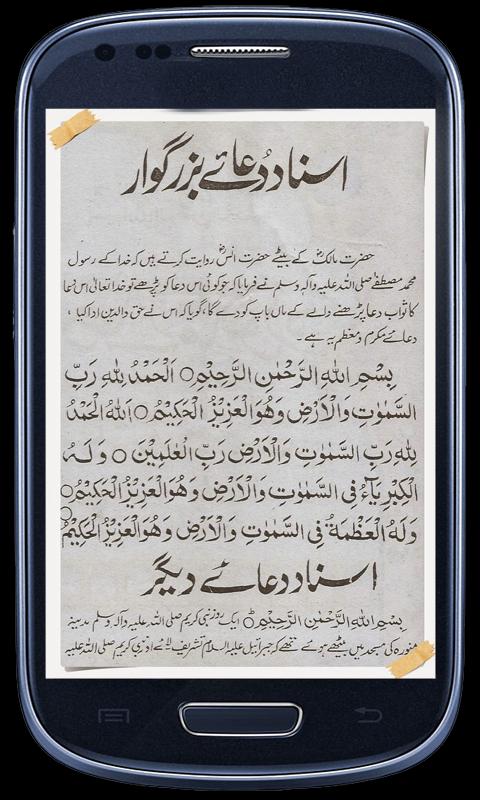 اسناد دُعائے بزرگوار
حضرت مالکؓ کے بیٹے حضرت انسؓ روایت کرتے ہیں کہ خدا کے رسول
محمد مصطفےٰ صلی اللہ علیہ وآلہ وسلم نے فرمایا کہ جو کوئی اس دعا کو پڑھے تو خدا تعالیٰ اس دعا
کا ثواب دعا پڑھنے والے کے ماں باپ کو دے گا، گویا کہ اس نے حق والدین ادا کیا ،
دعائے مکرم و معظم یہ ہے ۔
بِسْمِ اللهِ الرَّحْمٰنِ الرَّحِيْمِ○ اَلْحَمْدُ لِلّٰهِ رَبِّ
السَّمٰوٰتِ وَالْاَرْضِ وَهُوَ الْعَزِيْزُ الْحَكِيْمُ○ اَللهُ الْحَمْدُ
لِلّٰهِ رَبِّ السَّمٰوٰتِ وَالْاَرْضِ رَبِّ الْعٰلَمِيْنَ ○ وَلَهُ
الْكِبْرِيَآءُ فِى السَّمٰوٰتِ وَالْاَرْضِ وَهُوَ الْعَزِيْزُ الْحَكِيْمُ○
وَلَهُ الْعَظْمَةُ فِى السَّمٰوٰتِ وَالْاَرْضِ وَهُوَ الْعَزِيْزُ الْحَكِيْمُ○
اسناد دعائے دیگر
بِسْمِ اللهِ الرَّحْمٰنِ الرَّحِيْمِ○ ایک روز نبی کریم صلی اللہ علیہ وآلہ وسلم مدینہ
منورہ کی مسجد میں بیٹھے ہوئے تھے کہ جبرائیل علیہ السلام تشریف لائے اور نبی کریم صلی اللہ علیہ